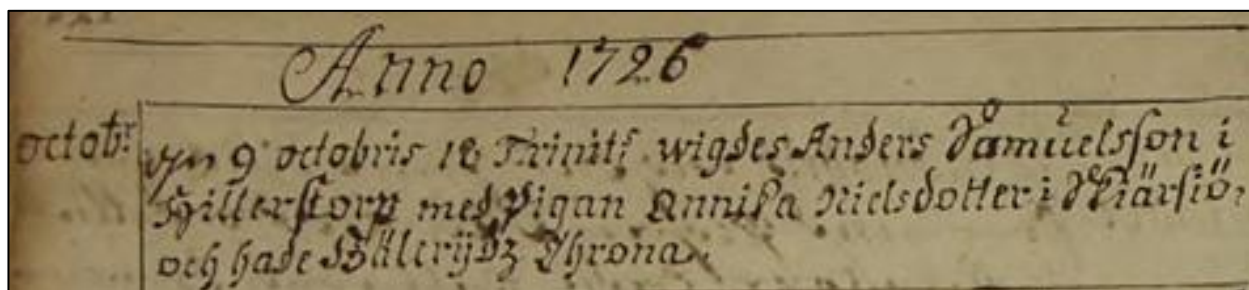 Anno 1726
octobr
Dn 9 octobris 18 Trinit: wigdes Anders Samuelsson i
Hillerstorp med Pigan Annika Nielsdotter i Marsiö,
och hade Bälerydz Chrona.